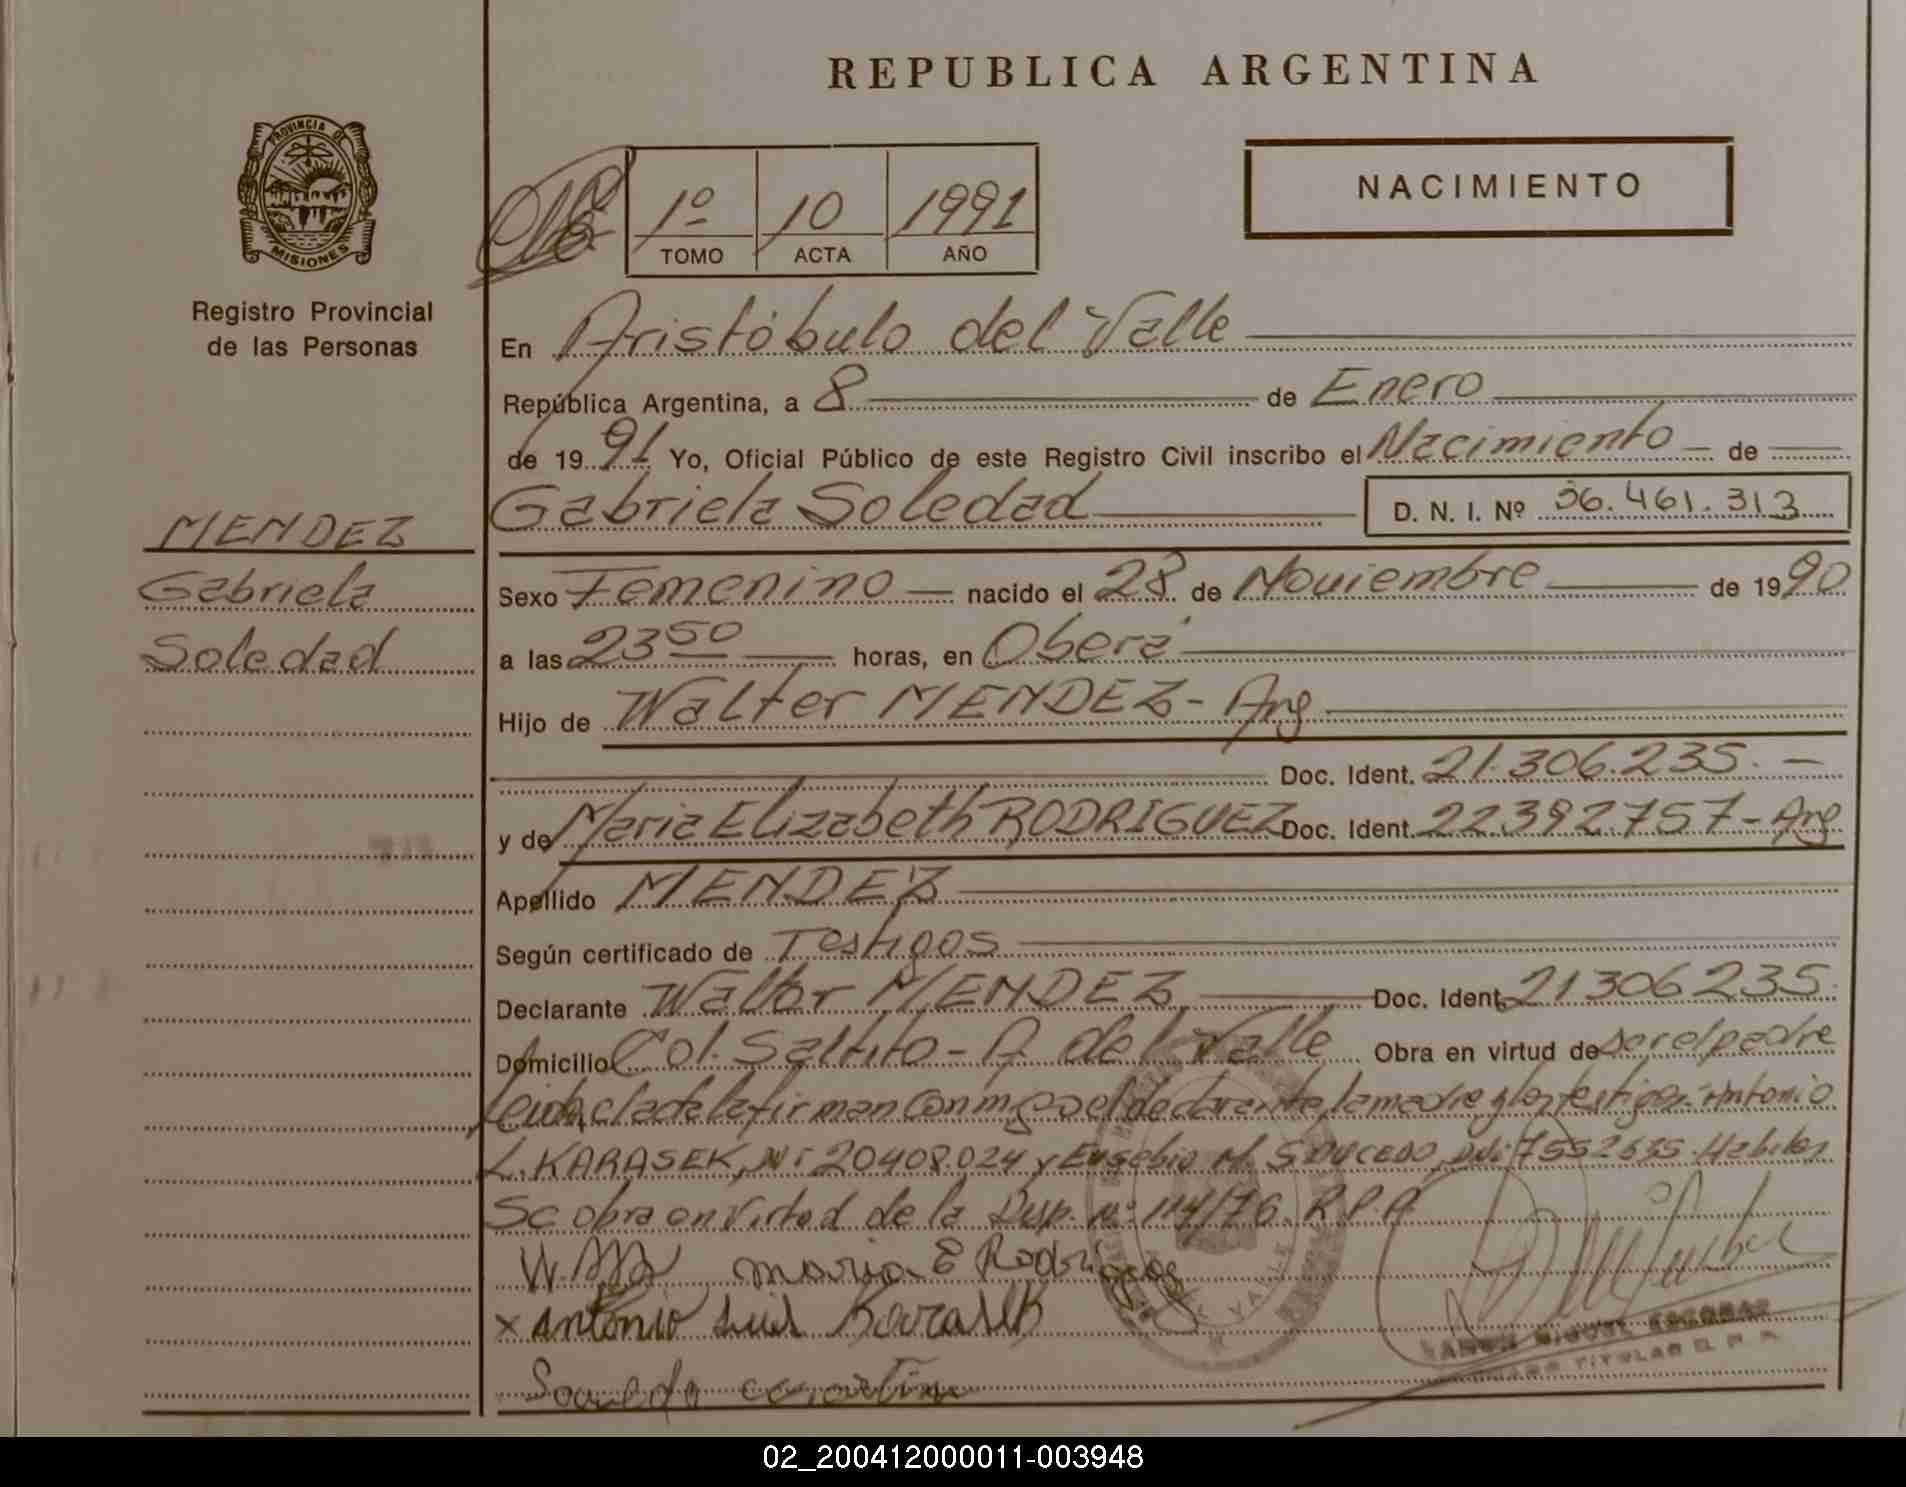 REPUBLICA ARGENTINA
PROVINCIA DE
MISIONES
Registro Provincial
de las Personas
1º 10 1991
TOMO ACTA AÑO
NACIMIENTO
En Aristóbulo del Valle
República Argentina, a 8 de Enero
de 1991 Yo, Oficial Público de este Registro Civil inscribo el Nacimiento de
Gabriela Soledad D. N. I. Nº 36.461.313
MENDEZ
Gabriela
Soledad
Sexo Femenino nacido el 28 de Noviembre de 1990
a las 23 50 horas, en Oberá
Hijo de Walter MENDEZ - Arg
Doc. Ident. 21.306.235. -
y de Maria Elizabeth RODRIGUEZ Doc. Ident. 22392757 - Arg
Apellido MENDEZ
Según certificado de Testigos
Declarante Walter MENDEZ Doc. Ident. 21306235.
Domicilio Col. Saltito - A. del Valle Obra en virtud de ser el padre
Leida el acta la firman conmigo el declarante, la madre y los testigos: Antonio
L. KARASEK, 20408.024 y Eusebio M. SAUCEDO, 7552635. Habiles
Se obra en virtud de la Disp. Nº 114/76. R.P.P.
Maria E Rodriguez
x Antonio Luis Karasek
MIGUEL ESCOBAR
TITULAR R. P. P.
02_200412000011-003948